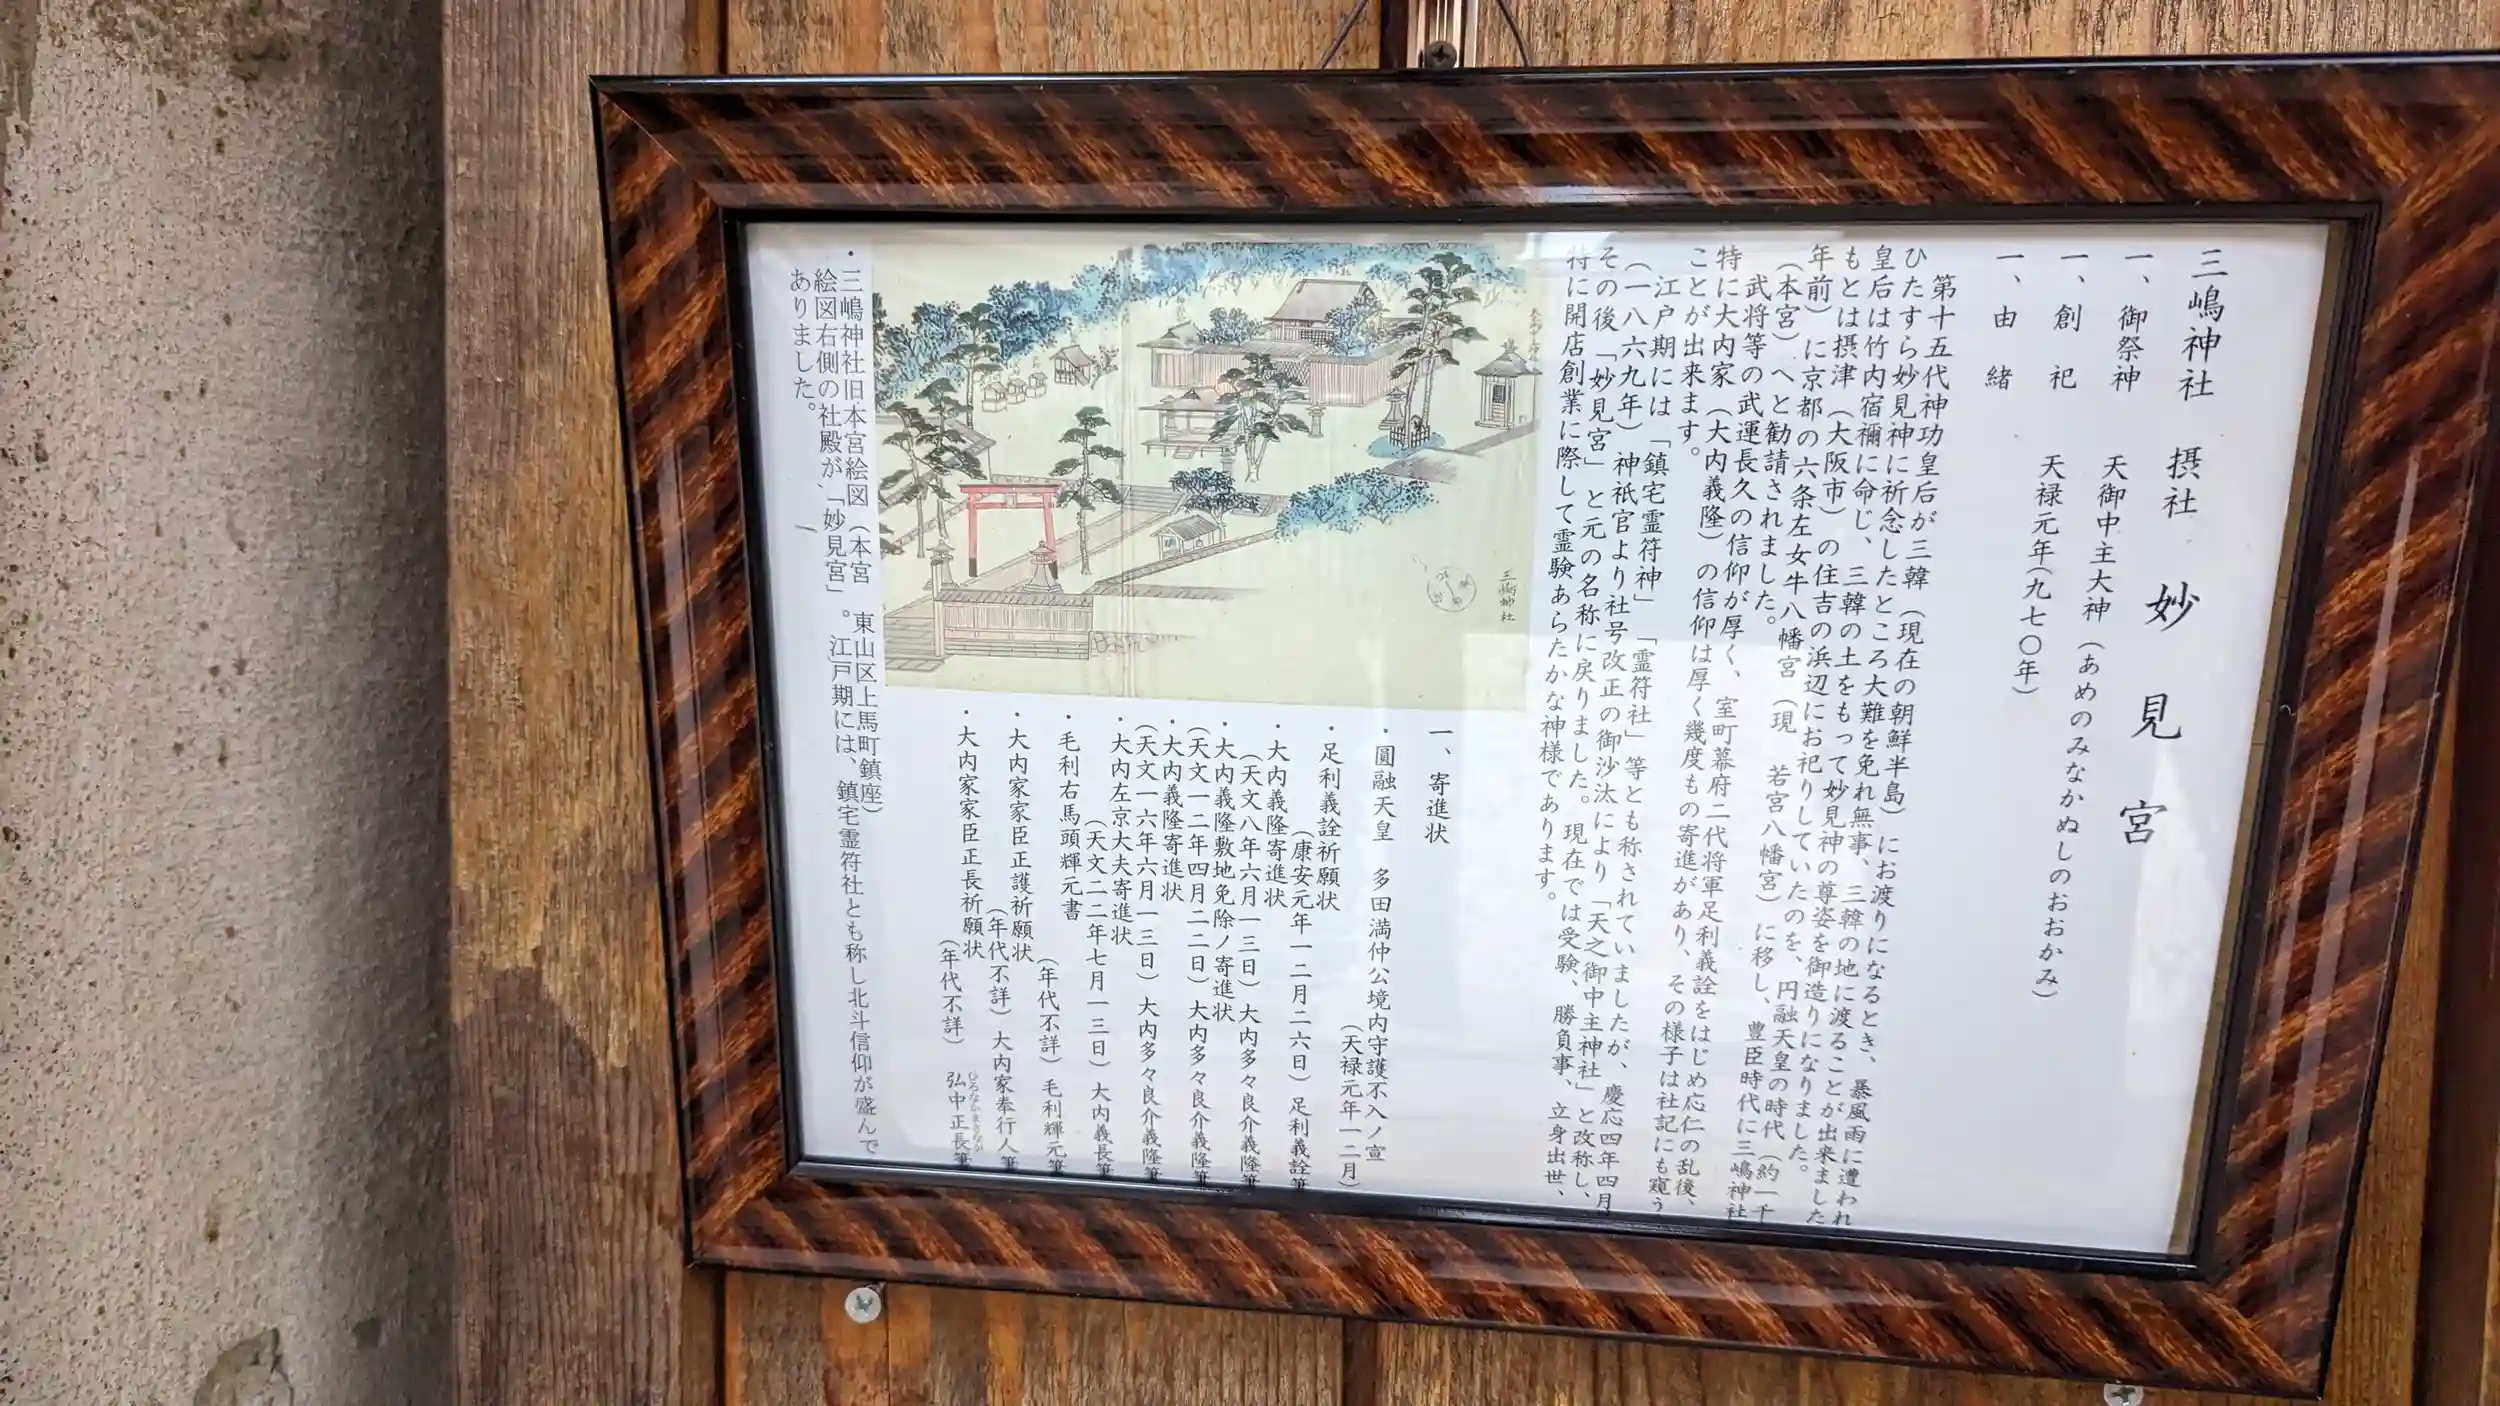 三嶋神社 摂社 妙見宮
一、御祭神 天御中主大神（あめのみなかぬしのおおかみ）
一、創 祀 天禄元年（九七〇年）
一、由 緒
第十五代神功皇后が三韓（現在の朝鮮半島）にお渡りになるとき、暴風雨に遭われ
ひたすら妙見神に祈念したところ大難を免れ無事、三韓の地に渡ることが出来ました
皇后は竹内宿禰に命じ、三韓の土をもって妙見神の尊姿を御造りになりました。
もとは摂津（大阪市）の住吉の浜辺にお祀りしていたのを、円融天皇の時代（約一千
年前）に京都の六条左女牛八幡宮（現 若宮八幡宮）に移し、豊臣時代に三嶋神社
（本宮）へと勧請されました。
武将等の武運長久の信仰が厚く、室町幕府二代将軍足利義詮をはじめ応仁の乱後、
特に大内家（大内義隆）の信仰は厚く幾度もの寄進があり、その様子は社記にも窺う
ことが出来ます。
江戸期には「鎮宅霊符神」「霊符社」等とも称されていましたが、慶応四年四月
（一八六九年）神祇官より社号改正の御沙汰により「天之御中主神社」と改称し、
その後「妙見宮」と元の名称に戻りました。現在では受験、勝負事、立身出世、
特に開店創業に際して霊験あらたかな神様であります。
一、寄進状
・圓融天皇 多田満仲公境内守護不入ノ宣
（天禄元年一二月）
・足利義詮祈願状
（康安元年一二月二六日）足利義詮筆
・大内義隆寄進状
（天文八年六月一三日）大内多々良介義隆筆
・大内義隆敷地免除ノ寄進状
（天文一二年四月二二日）大内多々良介義隆筆
・大内義隆寄進状
（天文一六年六月一三日）大内多々良介義隆筆
・大内左京大夫寄進状
（天文二二年七月一三日）大内義長筆
・毛利右馬頭輝元書
（年代不詳）毛利輝元筆
・大内家家臣正護祈願状
（年代不詳）大内家奉行人筆
・大内家家臣正長祈願状
（年代不詳）弘中正長筆
ひろなかまさなが
三嶋神社
・三嶋神社旧本宮絵図（本宮 東山区上馬町鎮座）
絵図右側の社殿が、「妙見宮」。江戸期には、鎮宅霊符社とも称し北斗信仰が盛んで
ありました。